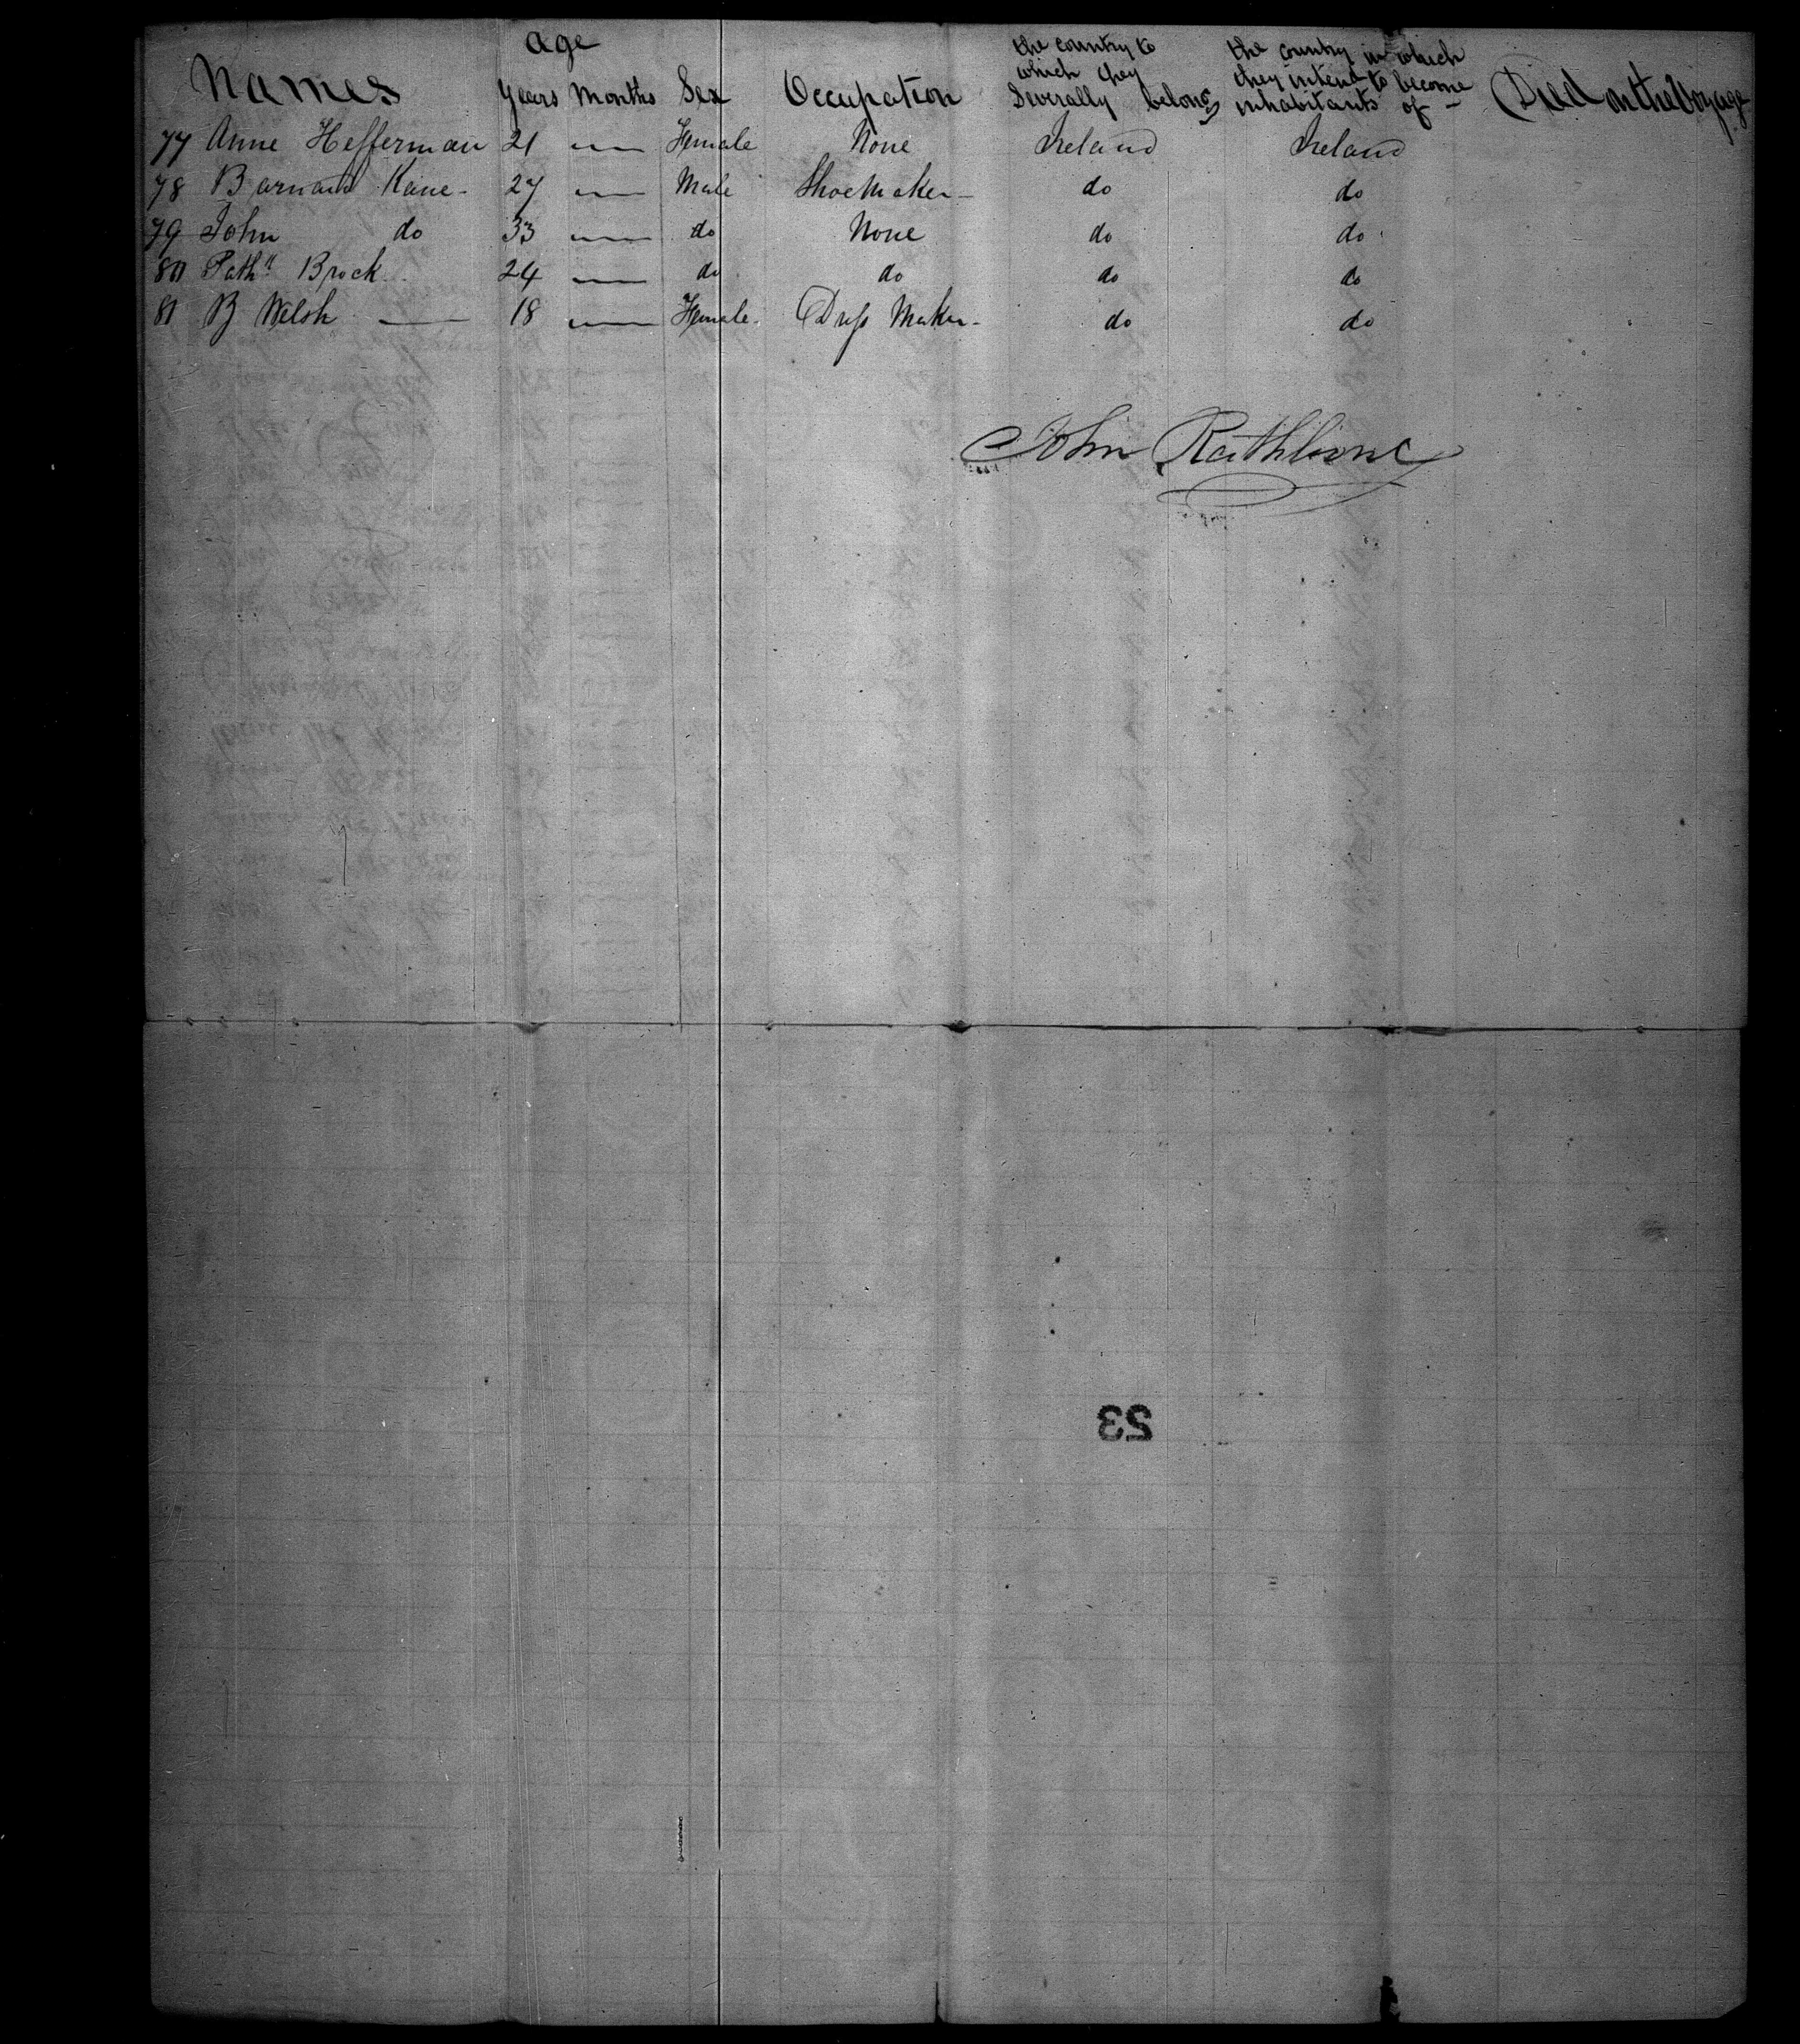 age
the country to the country in which
which they they intend to become
Names Years Months Sex Occupation Severally belong inhabitants of — Died on the Voyage
77 Anne Hefferman 21 — Female None Ireland Ireland
78 Barnard Kane - 27 — Male Shoemaker - do do
79 John do 33 — do None do do
80 Path.k Brock 24 — do do do do
81 B Welsh — 18 — Female Dress Maker - do do
John Rathbone
23